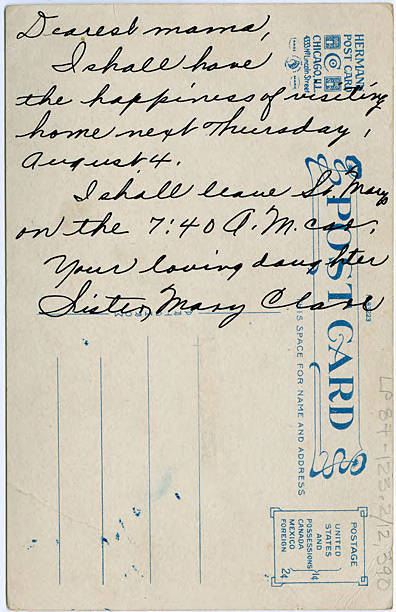 Dearest mama,
I shall have
the happiness of visiting
home next Thursday,
August 4.
I shall leave St. Marys
on the 7:40 A.M. car.
Your loving daughter
Sister, Mary Clare
HERMAN
POST CARD
CHICAGO, ILL.
POST CARD
THIS SPACE FOR NAME AND ADDRESS
POSTAGE
UNITED
STATES
AND
POSSESSIONS
CANADA
MEXICO
1¢
FOREIGN 2¢